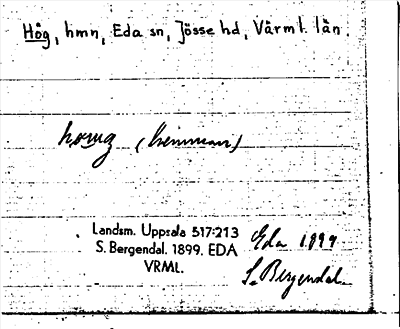 Hög, hmn, Eda sn, Jösse hd, Värml. län.
(hemman)
Landsm. Uppsala 517:213
S. Bergendal. 1899. EDA
VRML.
Eda 1899
S. Bergendal.